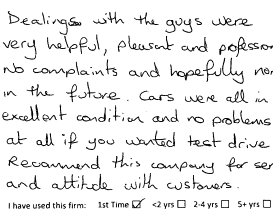 Dealings with the guys were
very helpful, pleasant and profession
No complaints and hopefully no
in the future. Cars were all in
excellent condition and no problems
at all if you wanted test drive
Recommend this company for ser
and attitude with customers.
I have used this firm: 1st Time ☑ <2 yrs ☐ 2-4 yrs ☐ 5+ yrs ☐